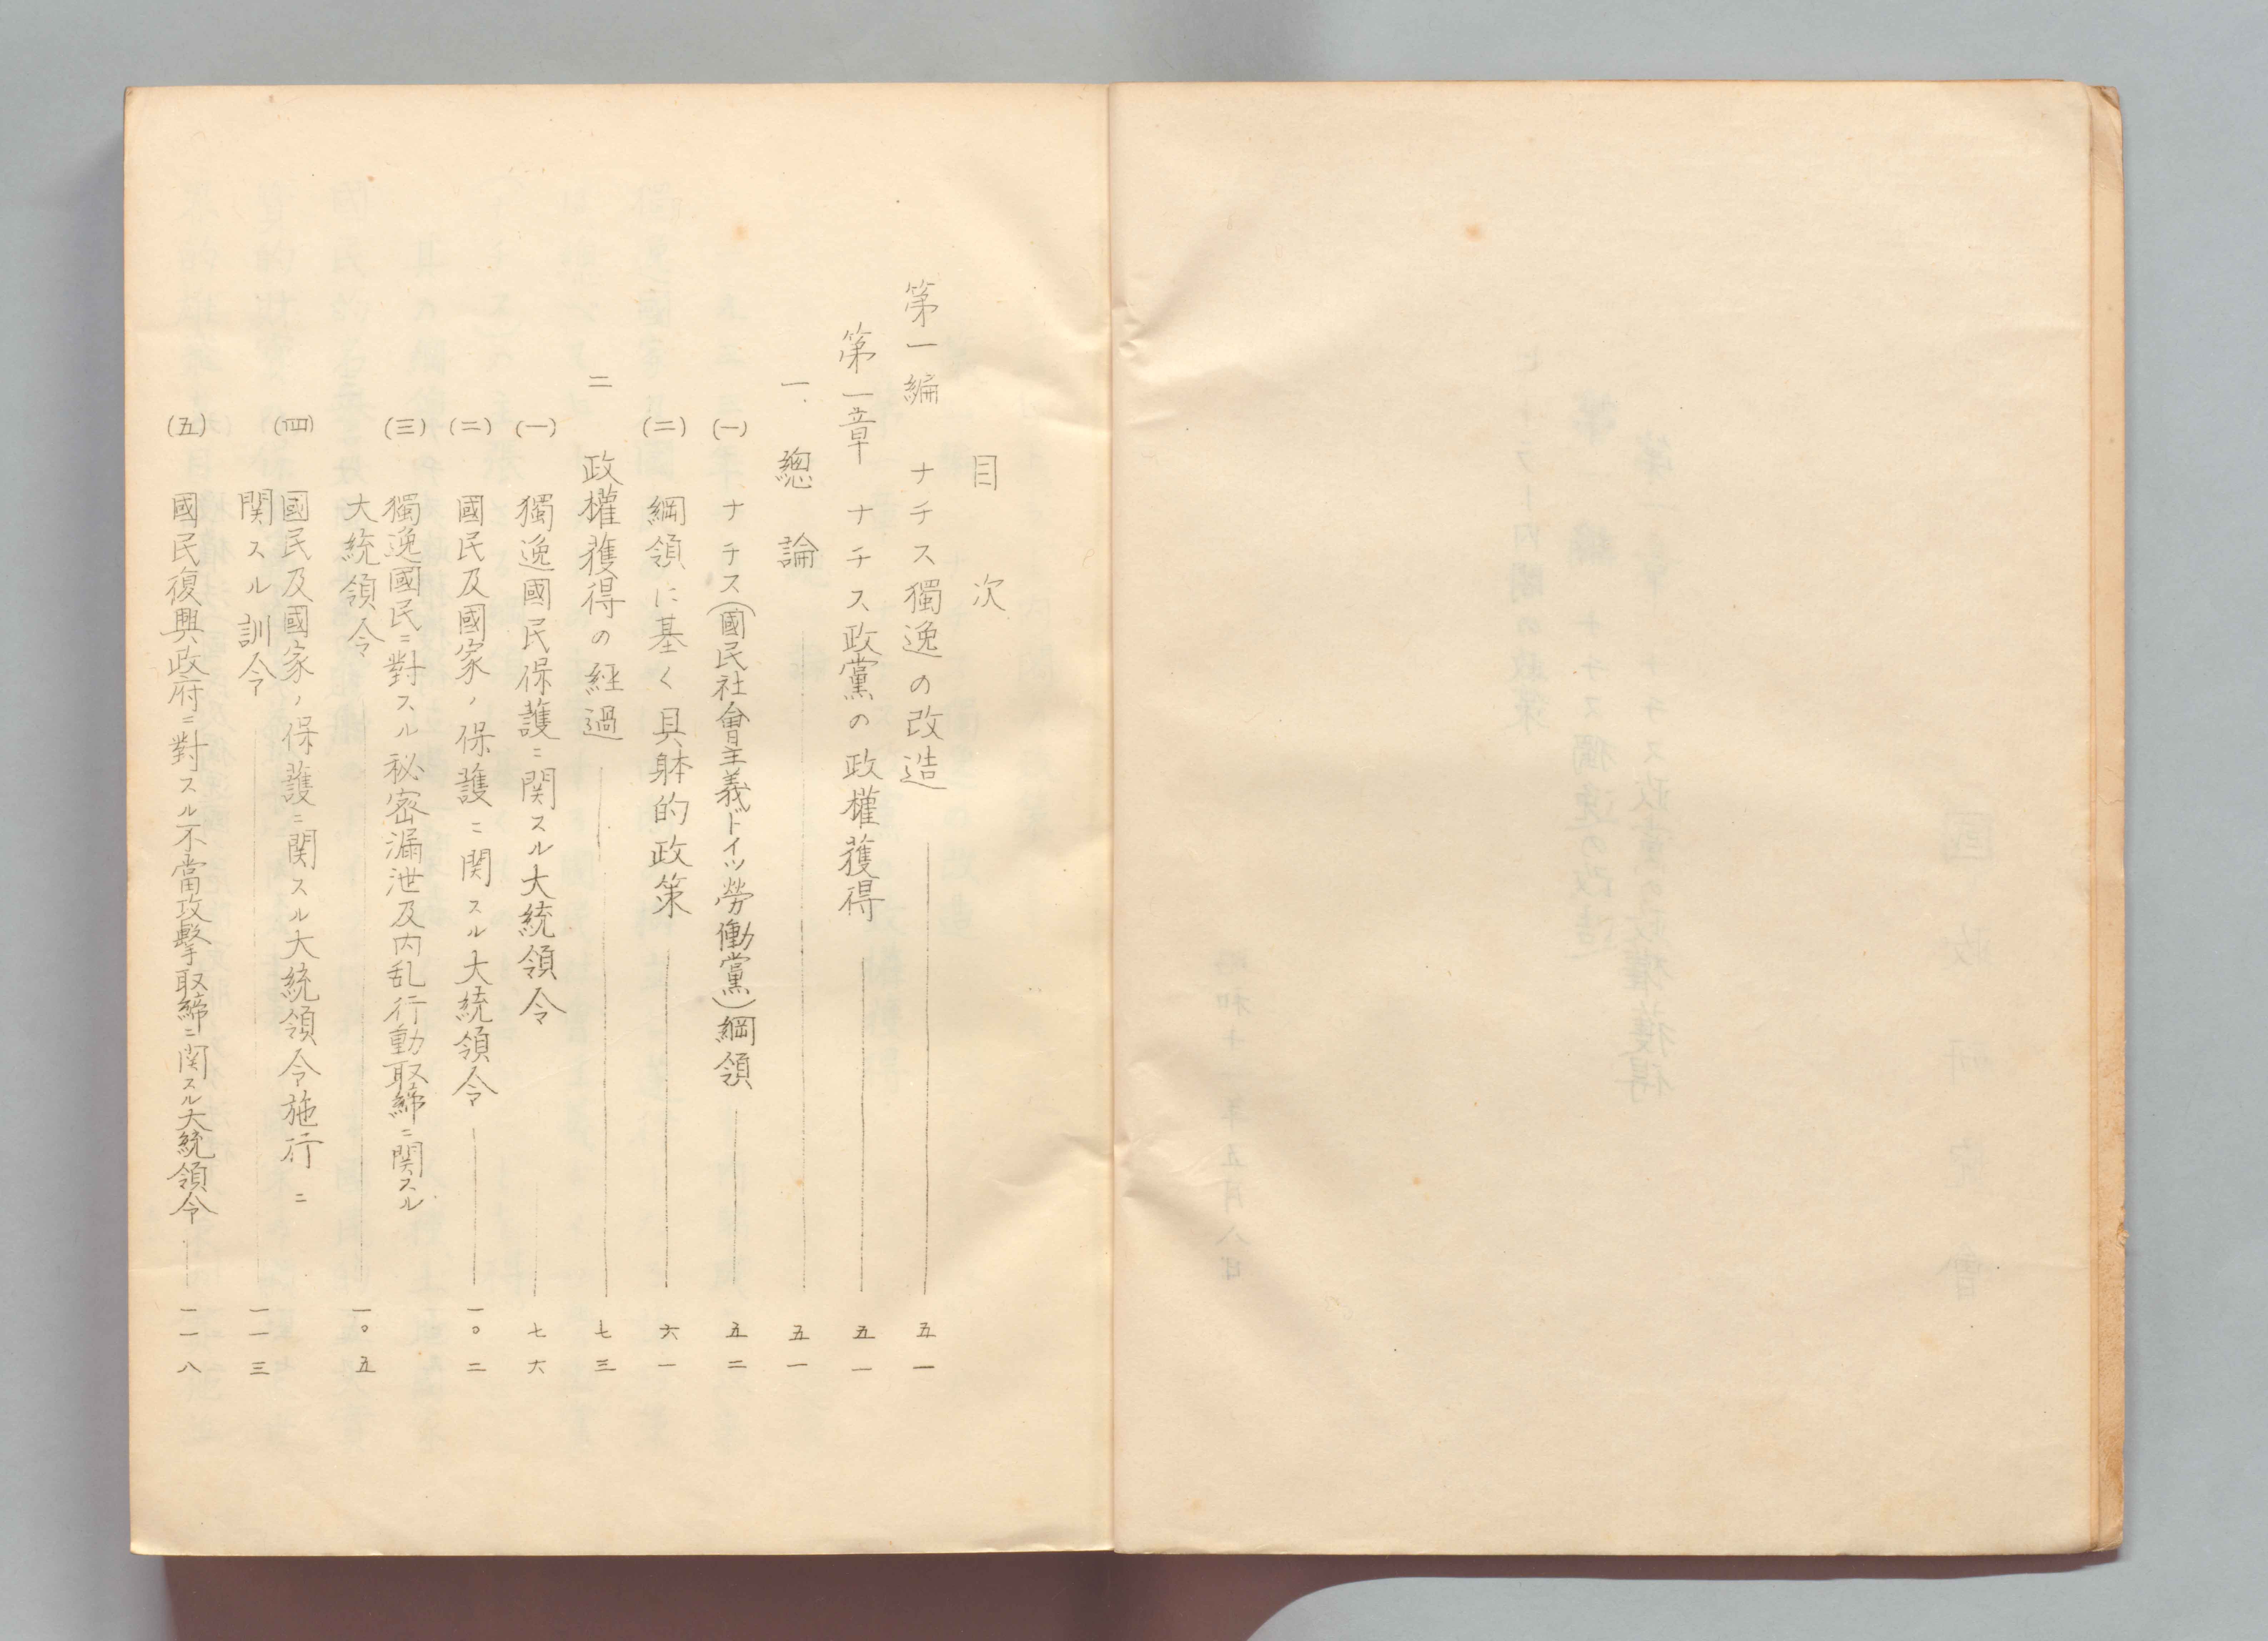 目次
第一編 ナチス獨逸の改造 五一
第一章 ナチス政黨の政權獲得 五一
一. 總論 五一
(一) ナチス(國民社會主義ドイツ勞働黨)綱領 五二
(二) 綱領に基く具躰的政策 六一
二 政權獲得の経過 七三
(一) 獨逸國民保護ニ関スル大統領令 七六
(二) 國民及國家ノ保護ニ関スル大統領令 一〇二
(三) 獨逸國民ニ對スル秘密漏泄及内乱行動取締ニ関スル
大統領令 一〇五
(四) 國民及國家ノ保護ニ関スル大統領令施行ニ
関スル訓令 一一三
(五) 國民復興政府ニ對スル不當攻擊取締ニ関スル大統領令 一一八